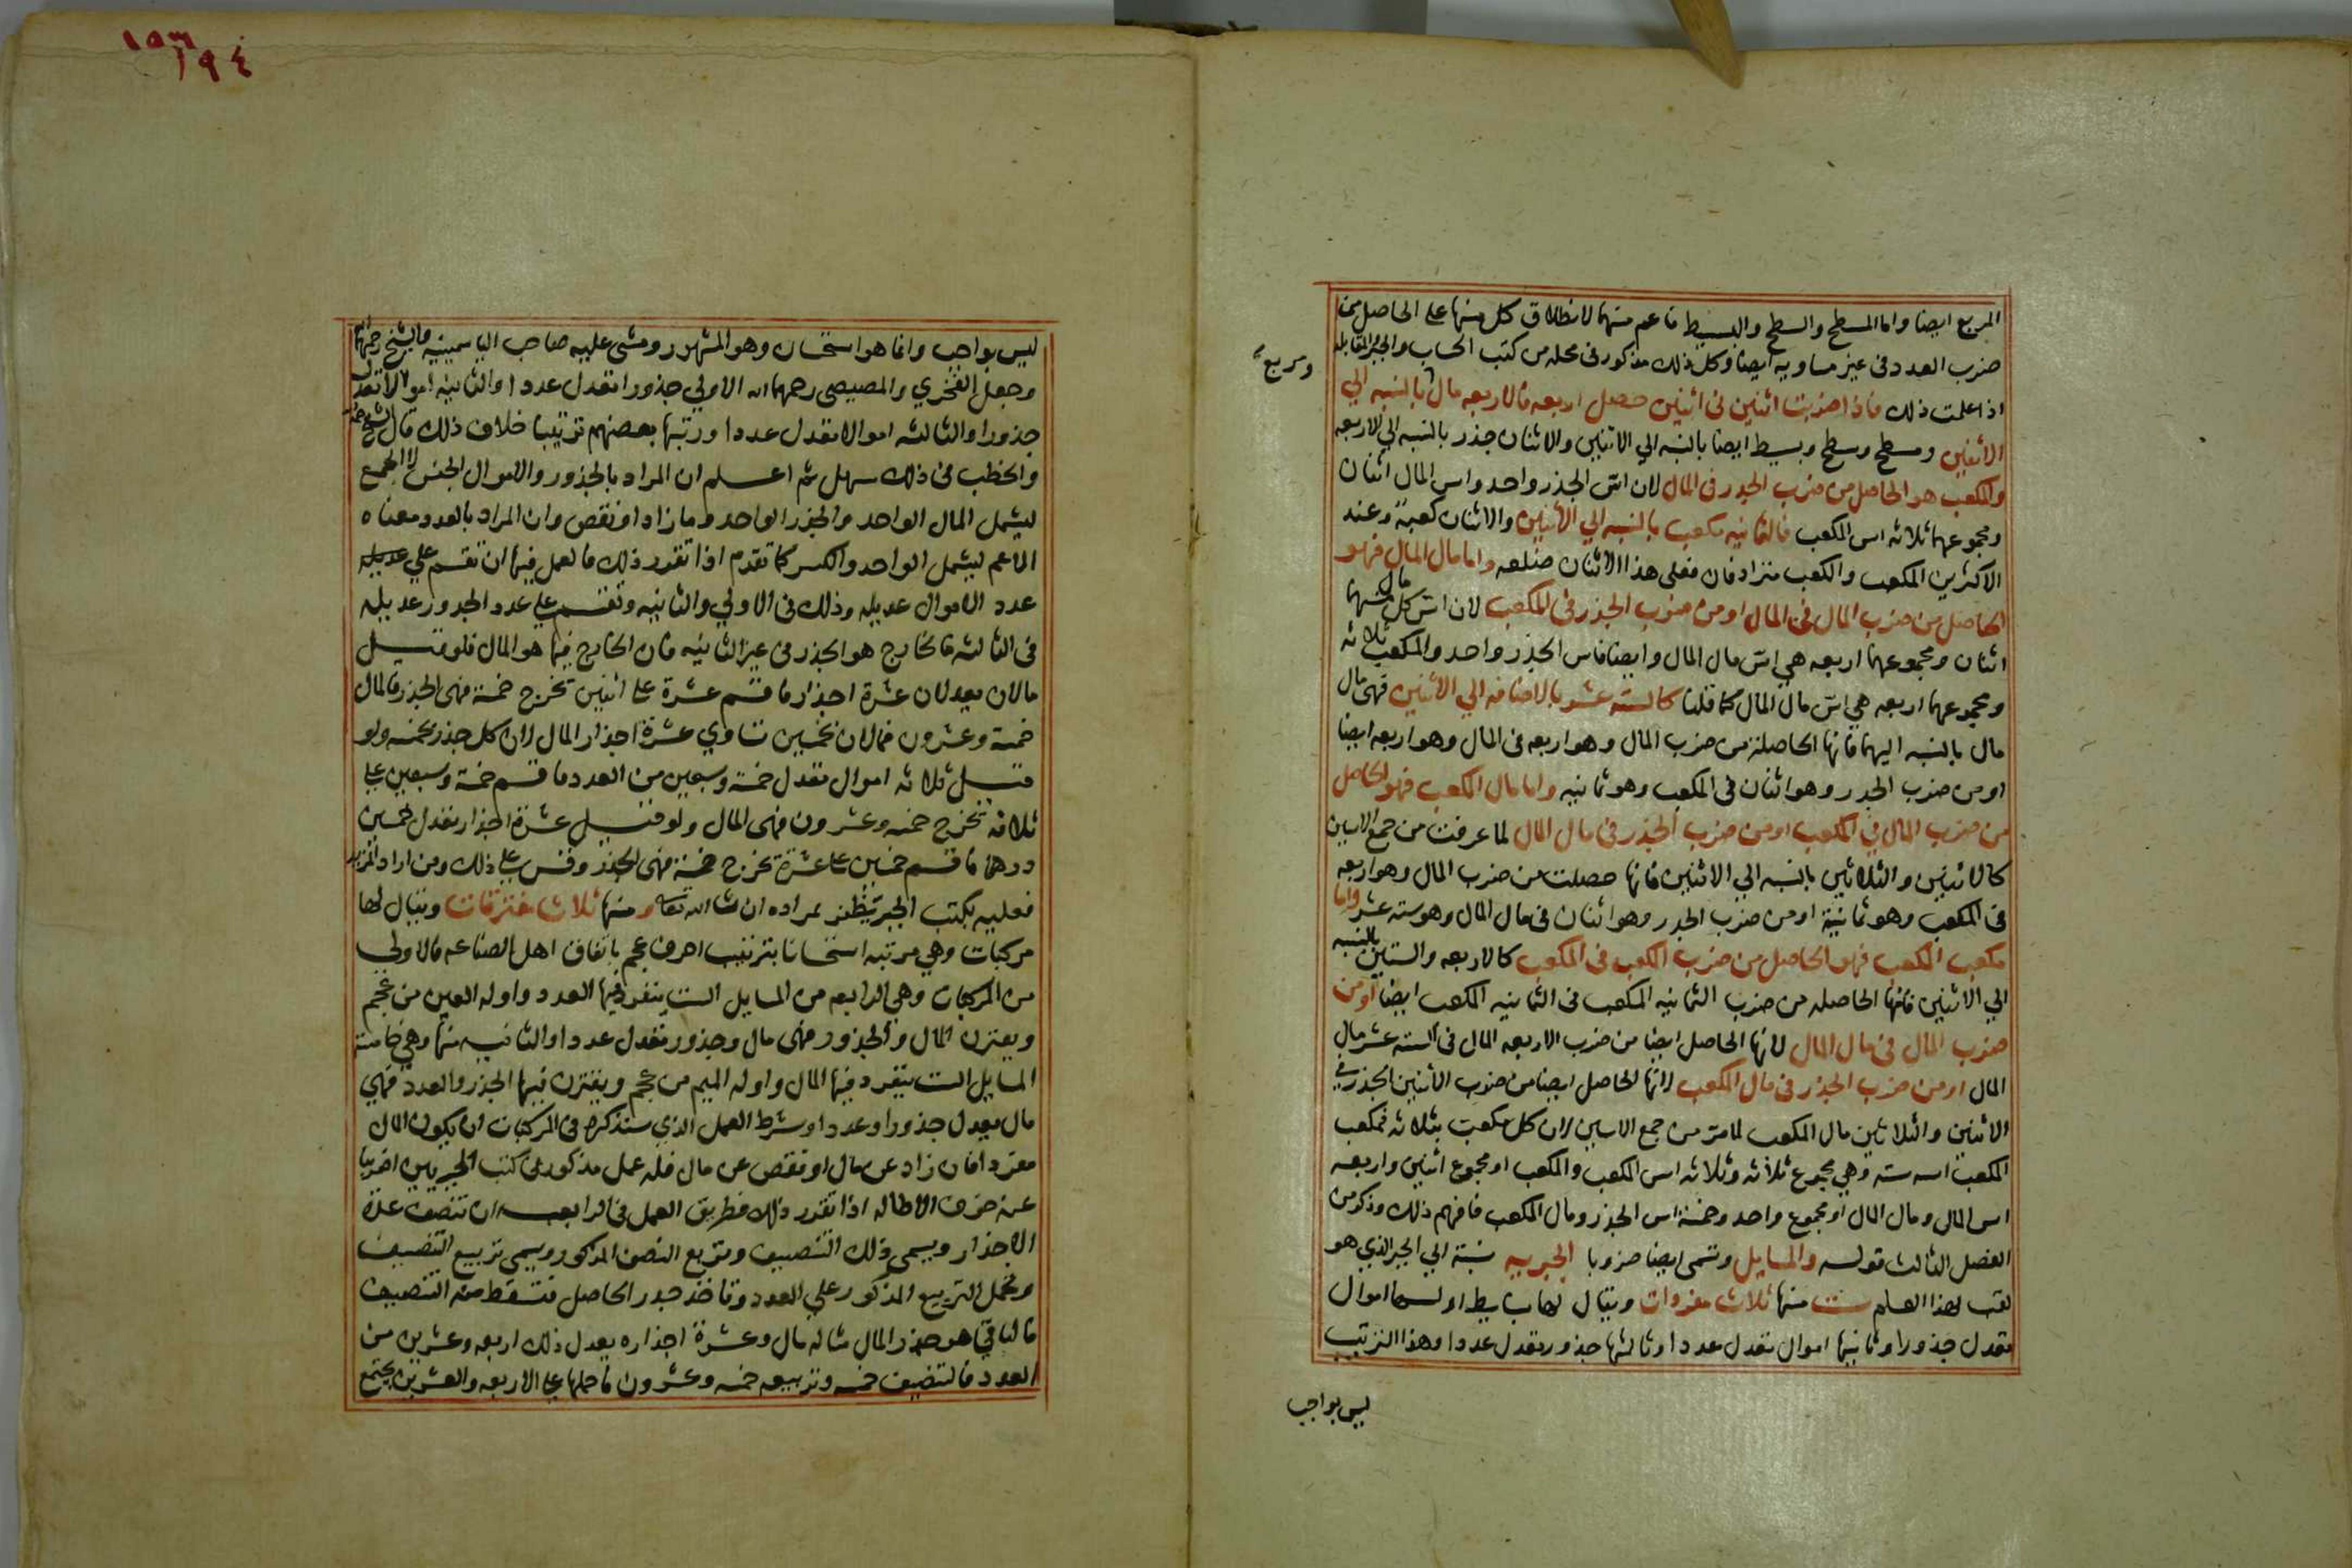 المربع ايضا واما المسطح والسطح والبسيط فاعم منهما لانطلاق كل منها على الحاصل من
ضرب العدد في غير مساويه ايضا وكل ذلك مذكور في محله من كتب الحساب والجبر والمقابلة
اذا علمت ذلك فاذا ضربت اثنين في اثنين حصل اربعه فالاربعه مال بالنسبه الي
ومربع
الاثنين ومسطح وسطح وبسيط ايضا بالنسبه الي الاثنين والاثنان جذر بالنسبه الي الاربعه
والمكعب هو الحاصل من ضرب الجذر في المال لان اس الجذر واحد واس المال اثنان
ومجموعهما ثلاثه اس المكعب فالثمانيه مكعب بالنسبه الي الاثنين والاثنان كعبه وعند
الاكثرين المكعب والكعب مترادفان فعلى هذا الاثنان ضلعه واما مال المال فهو
الحاصل من ضرب المال في المال او من ضرب الجذر في المكعب لان اس كل مال منهما
اثنان ومجموعهما اربعه هي اس مال المال وايضا فاس الجذر واحد والمكعب ثلاثه
ومجموعهما اربعه هي اس مال المال كما قلنا كالسته عشر بالاضافه الي الاثنين فهي مال
مال بالنسبه اليهما فانها الحاصلة من ضرب المال وهو اربعه في المال وهو اربعه ايضا
او من ضرب الجدر وهو اثنان في المكعب وهو ثمانيه واما مال المكعب فهو الحاصل
من ضرب المال في المكعب او من ضرب الجذر في مال المال لما عرفت من جمع الاسين
كالاثنين والثلاثين بالنسبه الي الاثنين فانها حصلت من ضرب المال وهو اربعه
في المكعب وهو ثمانية او من ضرب الجدر وهو اثنان في مال المال وهو سته عشر واما
مكعب المكعب فهو الحاصل من ضرب المكعب في المكعب كالاربعه والستين بالنسبه
الي الاثنين فانها الحاصله من ضرب الثمانيه المكعب في الثمانيه المكعب ايضا او من
ضرب المال في مال المال لانها الحاصل ايضا من ضرب الاربعه المال في السته عشر مال
المال او من ضرب الجذر في مال المكعب لانها الحاصل ايضا من ضرب الاثنين الجذر في
الاثنين والثلاثين مال المكعب لما مر من جمع الاسين لان كل مكعب بثلاثه فمكعب
المكعب اسه سته وهي مجموع ثلاثه وثلاثه اس المكعب والمكعب او مجموع اثنين واربعه
اس المال ومال المال او مجموع واحد وخمسة اس الجذر ومال المكعب فافهم ذلك وذكر من
الفصل الثالث قوله والمسايل وتسمى ايضا ضروبا الجبريه نسبة الي الجبر الذي هو
لقب لهذا العلم ست منها ثلاث مفردات ويقال لها بسايط اولها اموال
تعدل جذورا وثانيها اموال تعدل عددا وثالثها جذور تعدل عددا وهذا الترتيب
ليس بواجب
١٩٤
ليس بواجب وانما هو استحسان وهو المشهور ومشى عليه صاحب الياسمينيه والشيخ رحمهما الله
وجعل الفخري والمصيصي رحمهما الله الاولي جذورا تعدل عددا والثانية اموالا تعدل
جذورا والثالثه اموالا تعدل عددا ورتبها بعضهم ترتيبا خلاف ذلك قال الشيخ
والخطب في ذلك سهل ثم اعلم ان المراد بالجذور والاموال الجنس لا الجمع
ليشمل المال الواحد والجذر الواحد وما زاد او نقص وان المراد بالعدد معناه
الاعم ليشمل الواحد والكسر كما تقدم اذا تقرر ذلك فالعمل فيها ان تقسم علي
عدد الاموال عديله وذلك في الاولي والثانيه وتقسم على عدد الجدور عديله
في الثالثه فالخارج هو الجذر في غير الثانيه فان الخارج فيها هو المال فلو قيل
مالان يعدلان عشرة اجذار فاقسم عشرة على اثنين تخرج خمسة فهي الجذر فالمال
خمسة وعشرون فمالان بخمسين تساوي عشرة اجذار المال لان كل جذر بخمسه ولو
قيل ثلاثه اموال تعدل خمسة وسبعين من العدد فاقسم خمسة وسبعين على
ثلاثه تخرج خمسه وعشرون فهي المال ولو قيل عشرة اجذار تعدل خمسين
درهما فاقسم خمسين على عشرة تخرج خمسة فهي الجذر وقس على ذلك ومن اراد
فعليه بكتب الجبر يظفر بمراده ان شا الله تعالى ومنها ثلاث مقترنات ويقال لها
مركبات وهي مرتبه استحسانا بترتيب احرف عجم باتفاق اهل الصناعه فالاولي
من المركبات وهي الرابعه من المسايل الست ينفرد فيها العدد واوله العين من عجم
ويقترن المال والجذور فهي مال وجذور تعدل عددا والثانيه منها وهي خامسة
المسايل الست ينفرد فيها المال واوله الميم من عجم ويقترن فيها الجذر والعدد فهي
مال يعدل جذورا وعددا وشرط العمل الذي سنذكره في المركبات ان يكون المال
مفردا فان زاد عن مال او نقص عن مال فله عمل مذكور في كتب الجبريين اضربنا
عنه خوف الاطاله اذا تقرر ذلك فطريق العمل في الرابعه ان تنصف عدة
الاجذار ويسمى ذلك التنصيف وتربع النصف المذكور ويسمى تربيع التنصيف
وتحمل التربيع المذكور علي العدد وتاخذ جدر الحاصل فتسقط منه التنصيف
فالباقي هو جذر المال مثاله مال وعشرة اجذاره يعدل ذلك اربعه وعشرين من
العدد فالتنصيف خمسه وتربيعه خمسه وعشرون فاحملها على الاربعه والعشرين يجتمع